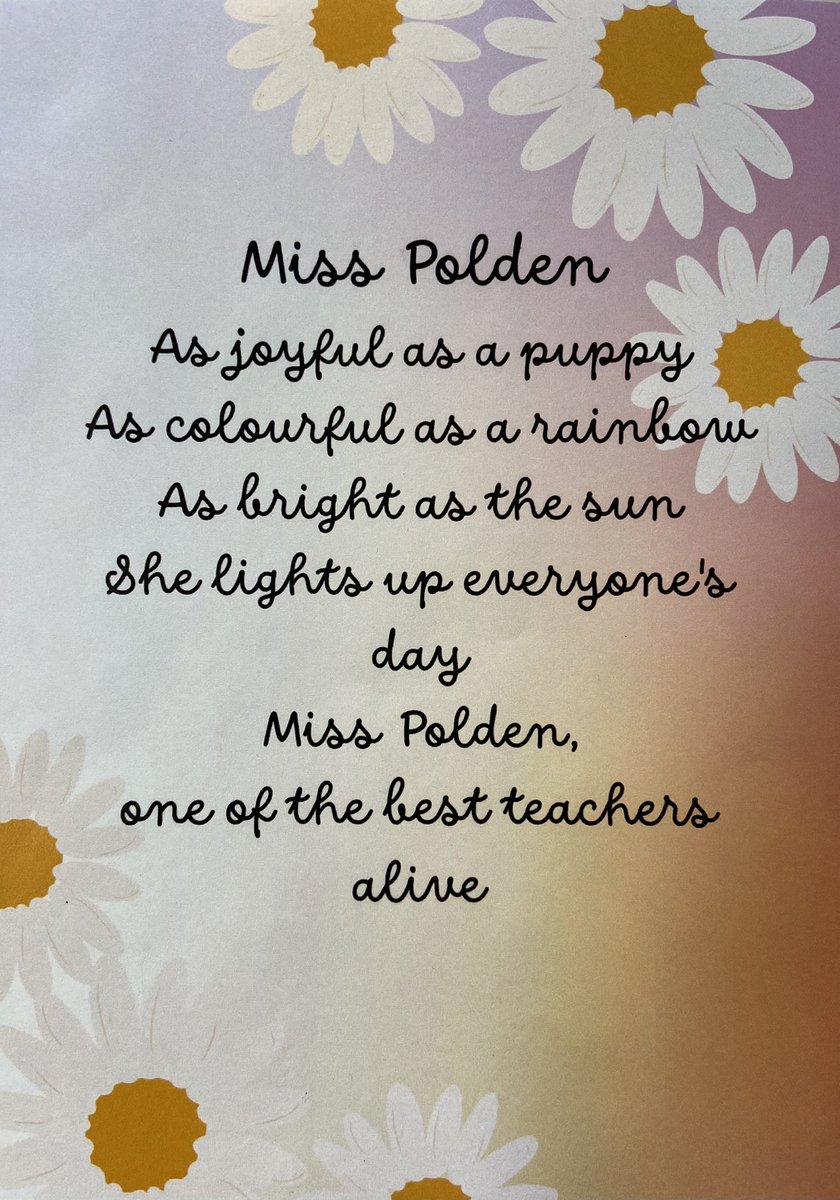 Miss Polden
As joyful as a puppy
As colourful as a rainbow
As bright as the sun
She lights up everyone's
day
Miss Polden,
one of the best teachers
alive